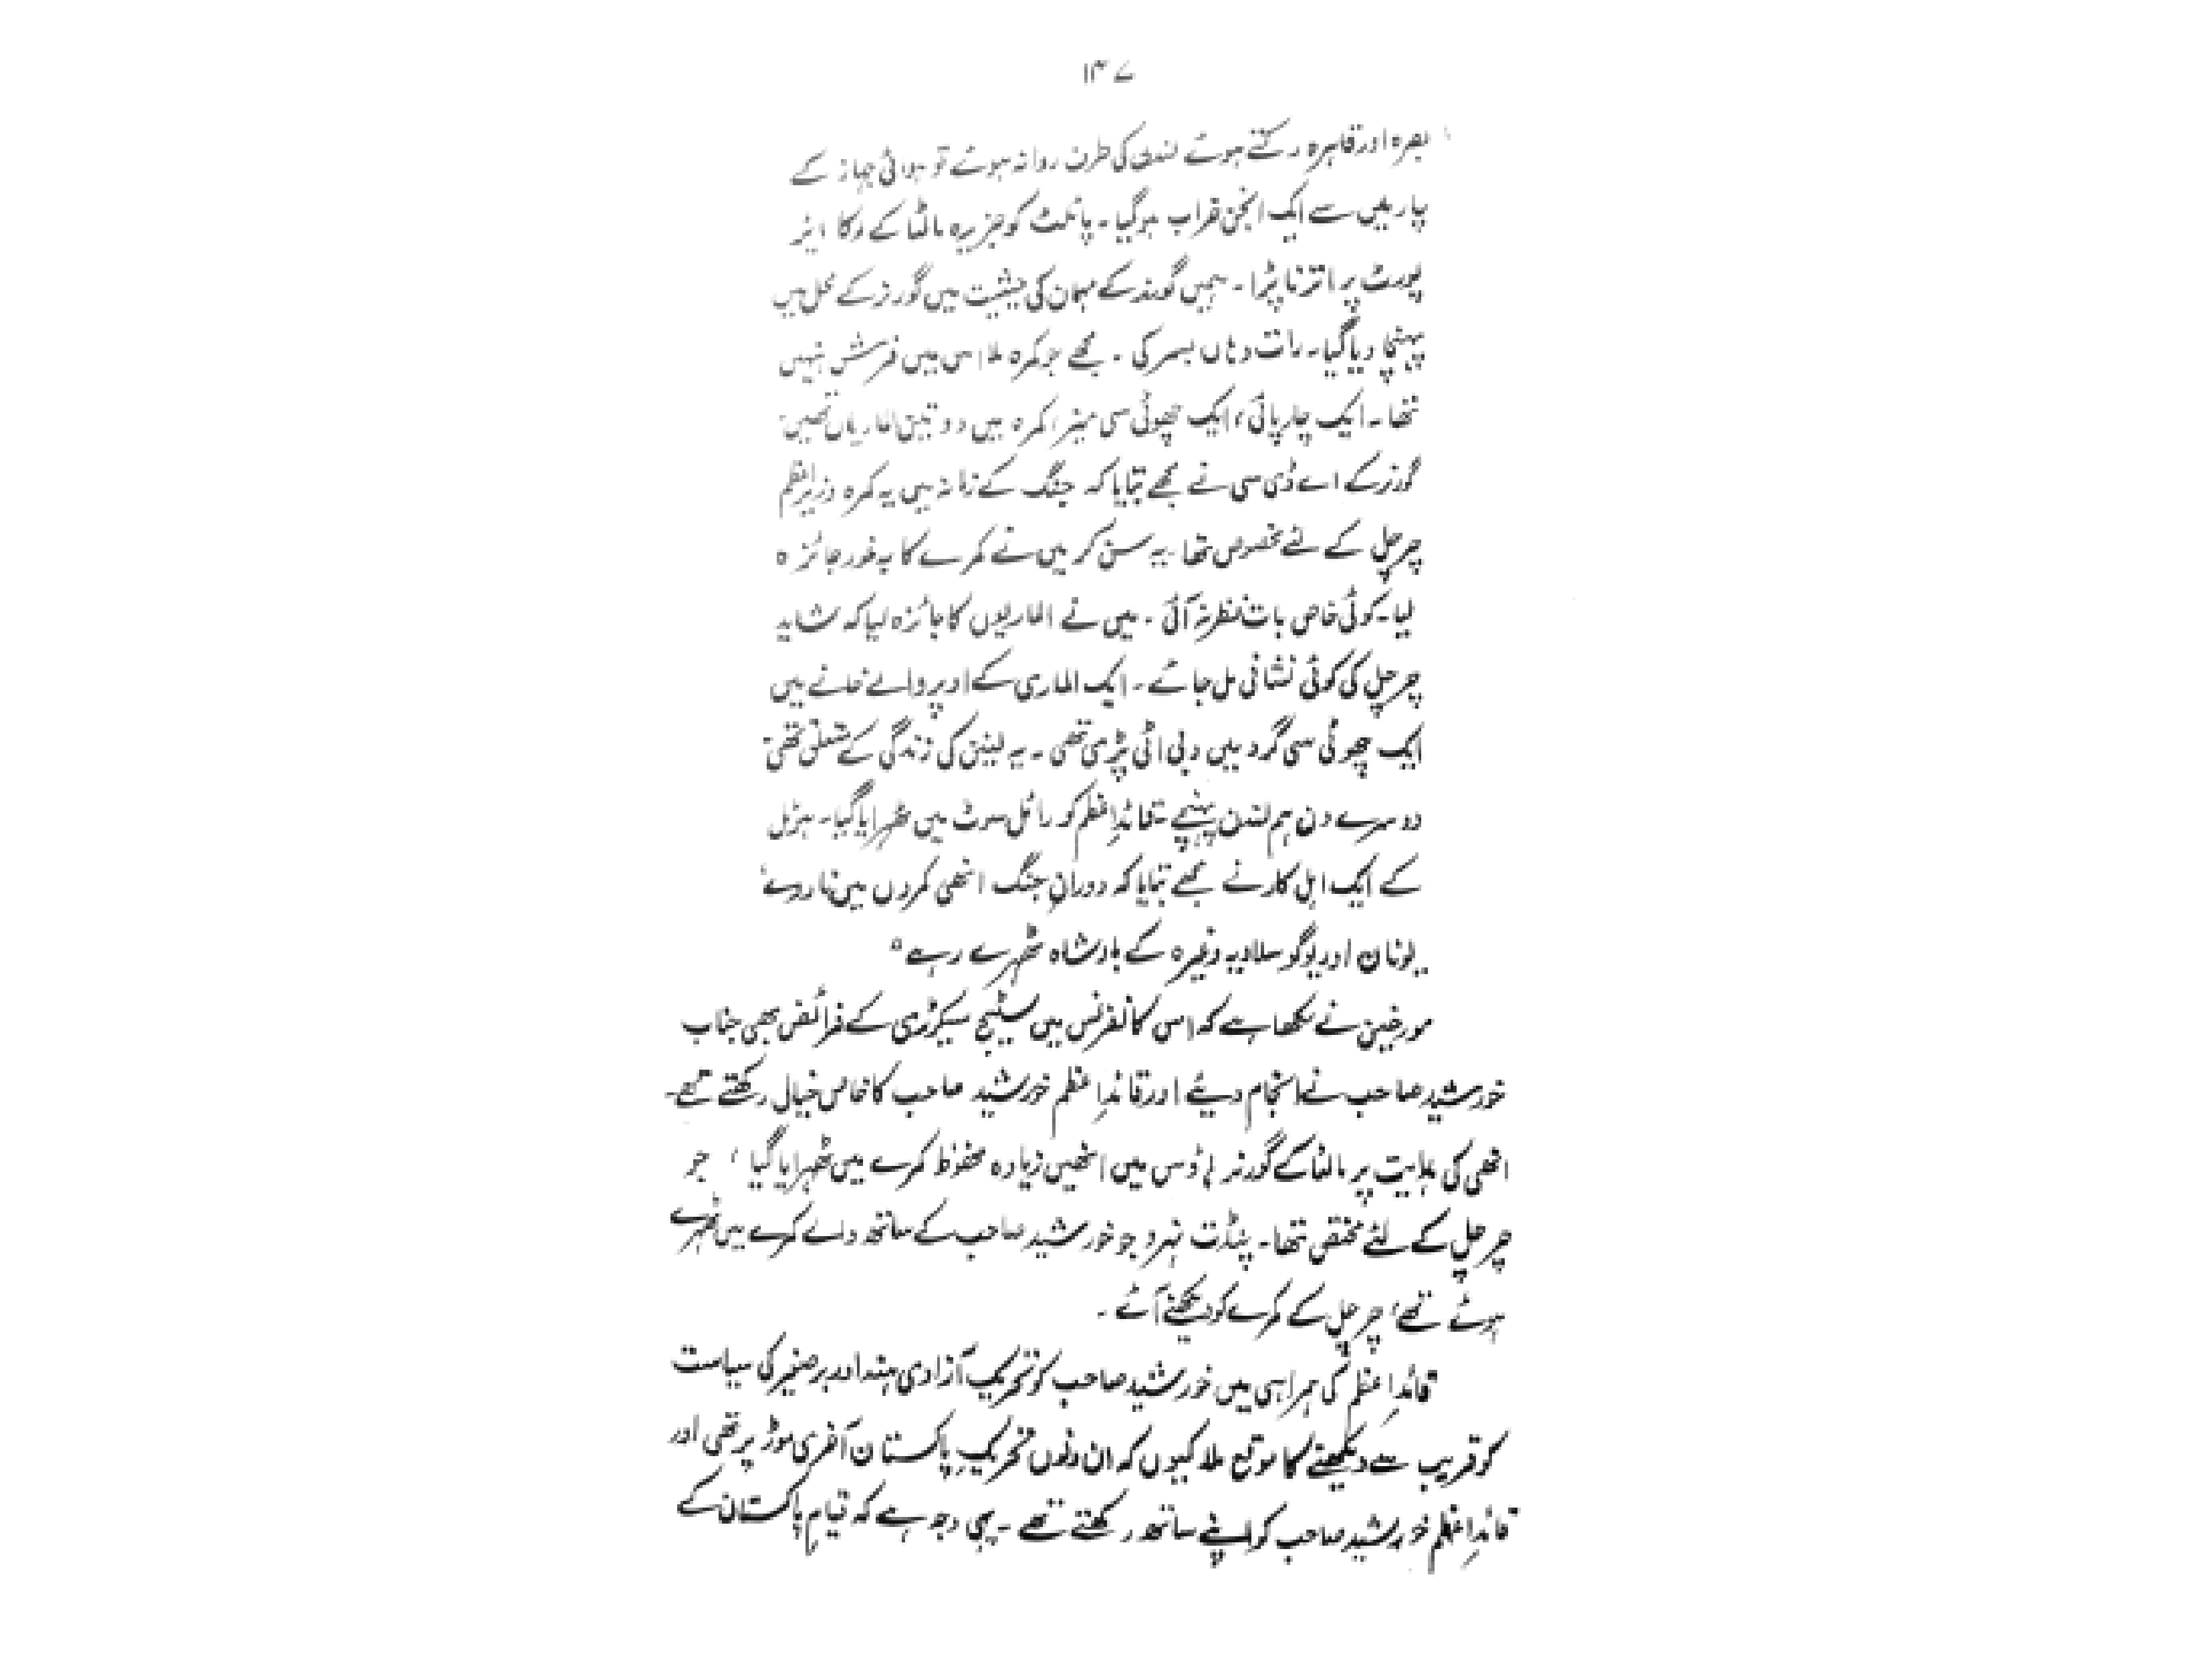 ۱۳۷
بصرہ اور قاہرہ رکتے ہوئے لندن کی طرف روانہ ہوئے تو ہوائی جہاز کے
چار میں سے ایک انجن خراب ہوگیا۔ پائلٹ کو جزیرہ مالٹا کے لوکا ایئر
پورٹ پر اترنا پڑا۔ ہمیں گورنر کے مہمان کی حیثیت میں گورنر کے محل میں
پہنچا دیا گیا۔ رات وہاں بسر کی۔ مجھے جو کمرہ ملا اس میں فرش نہیں
تھا۔ ایک چارپائی، ایک چھوٹی سی میز، کمرہ میں دو تین الماریاں تھیں۔
گورنر کے اے ڈی سی نے مجھے بتایا کہ جنگ کے زمانہ میں یہ کمرہ وزیراعظم
چرچل کے لئے مخصوص تھا۔ یہ سن کر میں نے کمرے کا بہ غور جائزہ
لیا۔ کوئی خاص بات نظر نہ آئی۔ میں نے الماریوں کا جائزہ لیا کہ شاید
چرچل کی کوئی نشانی مل جائے۔ ایک الماری کے اوپر والے خانے میں
ایک چھوٹی سی گرد میں دبی اٹی پڑی تھی۔ یہ لینن کی زندگی کے متعلق تھی۔
دوسرے دن ہم لندن پہنچے۔ قائداعظم کو رائل سوٹ میں ٹھہرایا گیا۔ ہوٹل
کے ایک اہل کار نے مجھے بتایا کہ دورانِ جنگ انھی کمروں میں ناروے،
یونان اور یوگوسلاویہ وغیرہ کے بادشاہ ٹھہرے رہے"
مورخین نے لکھا ہے کہ اس کانفرنس میں سٹیج سیکرٹری کے فرائض بھی جناب
خورشید صاحب نے انجام دیئے اور قائداعظم خورشید صاحب کا خاص خیال رکھتے تھے۔
انھی کی ہدایت پر مالٹا کے گورنر ہاؤس میں انھیں زیادہ محفوظ کمرے میں ٹھہرایا گیا، جو
چرچل کے لئے مختص تھا۔ پنڈت نہرو جو خورشید صاحب کے ساتھ والے کمرے میں ٹھہرے
ہوئے تھے، چرچل کے کمرے کو دیکھنے آئے۔
قائدِاعظم کی ہمراہی میں خورشید صاحب کو تحریکِ آزادی ہند اور برصغیر کی سیاست
کو قریب سے دیکھنے کا موقع ملا کیوں کہ ان دنوں تحریکِ پاکستان آخری موڑ پر تھی اور
قائدِاعظم خورشید صاحب کو اپنے ساتھ رکھتے تھے۔ یہی وجہ ہے کہ قیامِ پاکستان کے